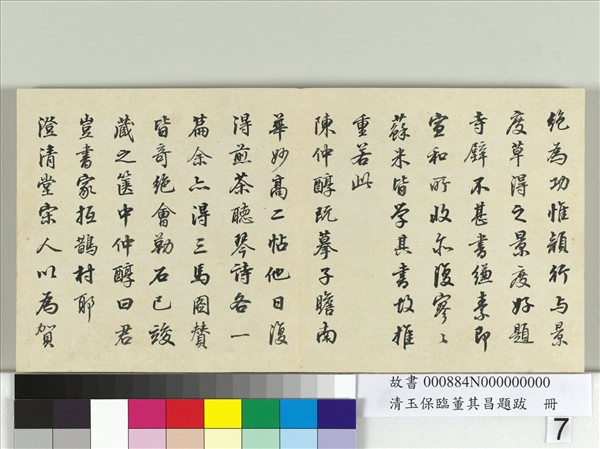 絶為功惟顏行与景
度草得之景度好題
寺壁不甚書縑素即
宣和所收亦復寥〻
蘇米皆學其書故推
重若此
陳仲醇既摹子瞻南
華妙高二帖他日復
得煎茶聽琴詩各一
篇余亦得三馬圖贊
皆奇絶會勒石已竣
藏之篋中仲醇曰君
豈書家抵鵲村耶
澄清堂宋人以為賀
故書 000884N000000000
清玉保臨董其昌題跋 冊
7